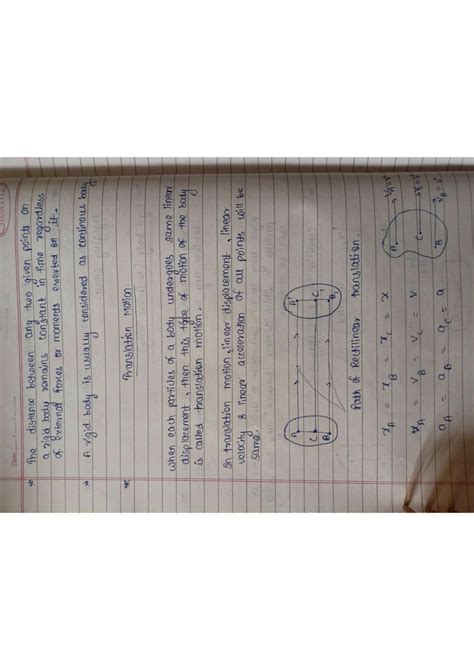 Date
* The distance between any two given points on
a rigid body remains constant in time regardless
of external forces or moments exerted on it.
* A rigid body is usually considered as continuous body
* Translation Motion
When each particles of a body undergoes same linear
displacement, then this type of motion of the body
is called translation motion.
In translation motion, linear displacement, linear
velocity & linear acceleration of all points will be
same.
A A'
C C1
B B1
Path of Rectilinear translation.
xA = xB = xC = x
vA = vB = vC = v
aA = aB = aC = a
A vA = v
C
B vB = v